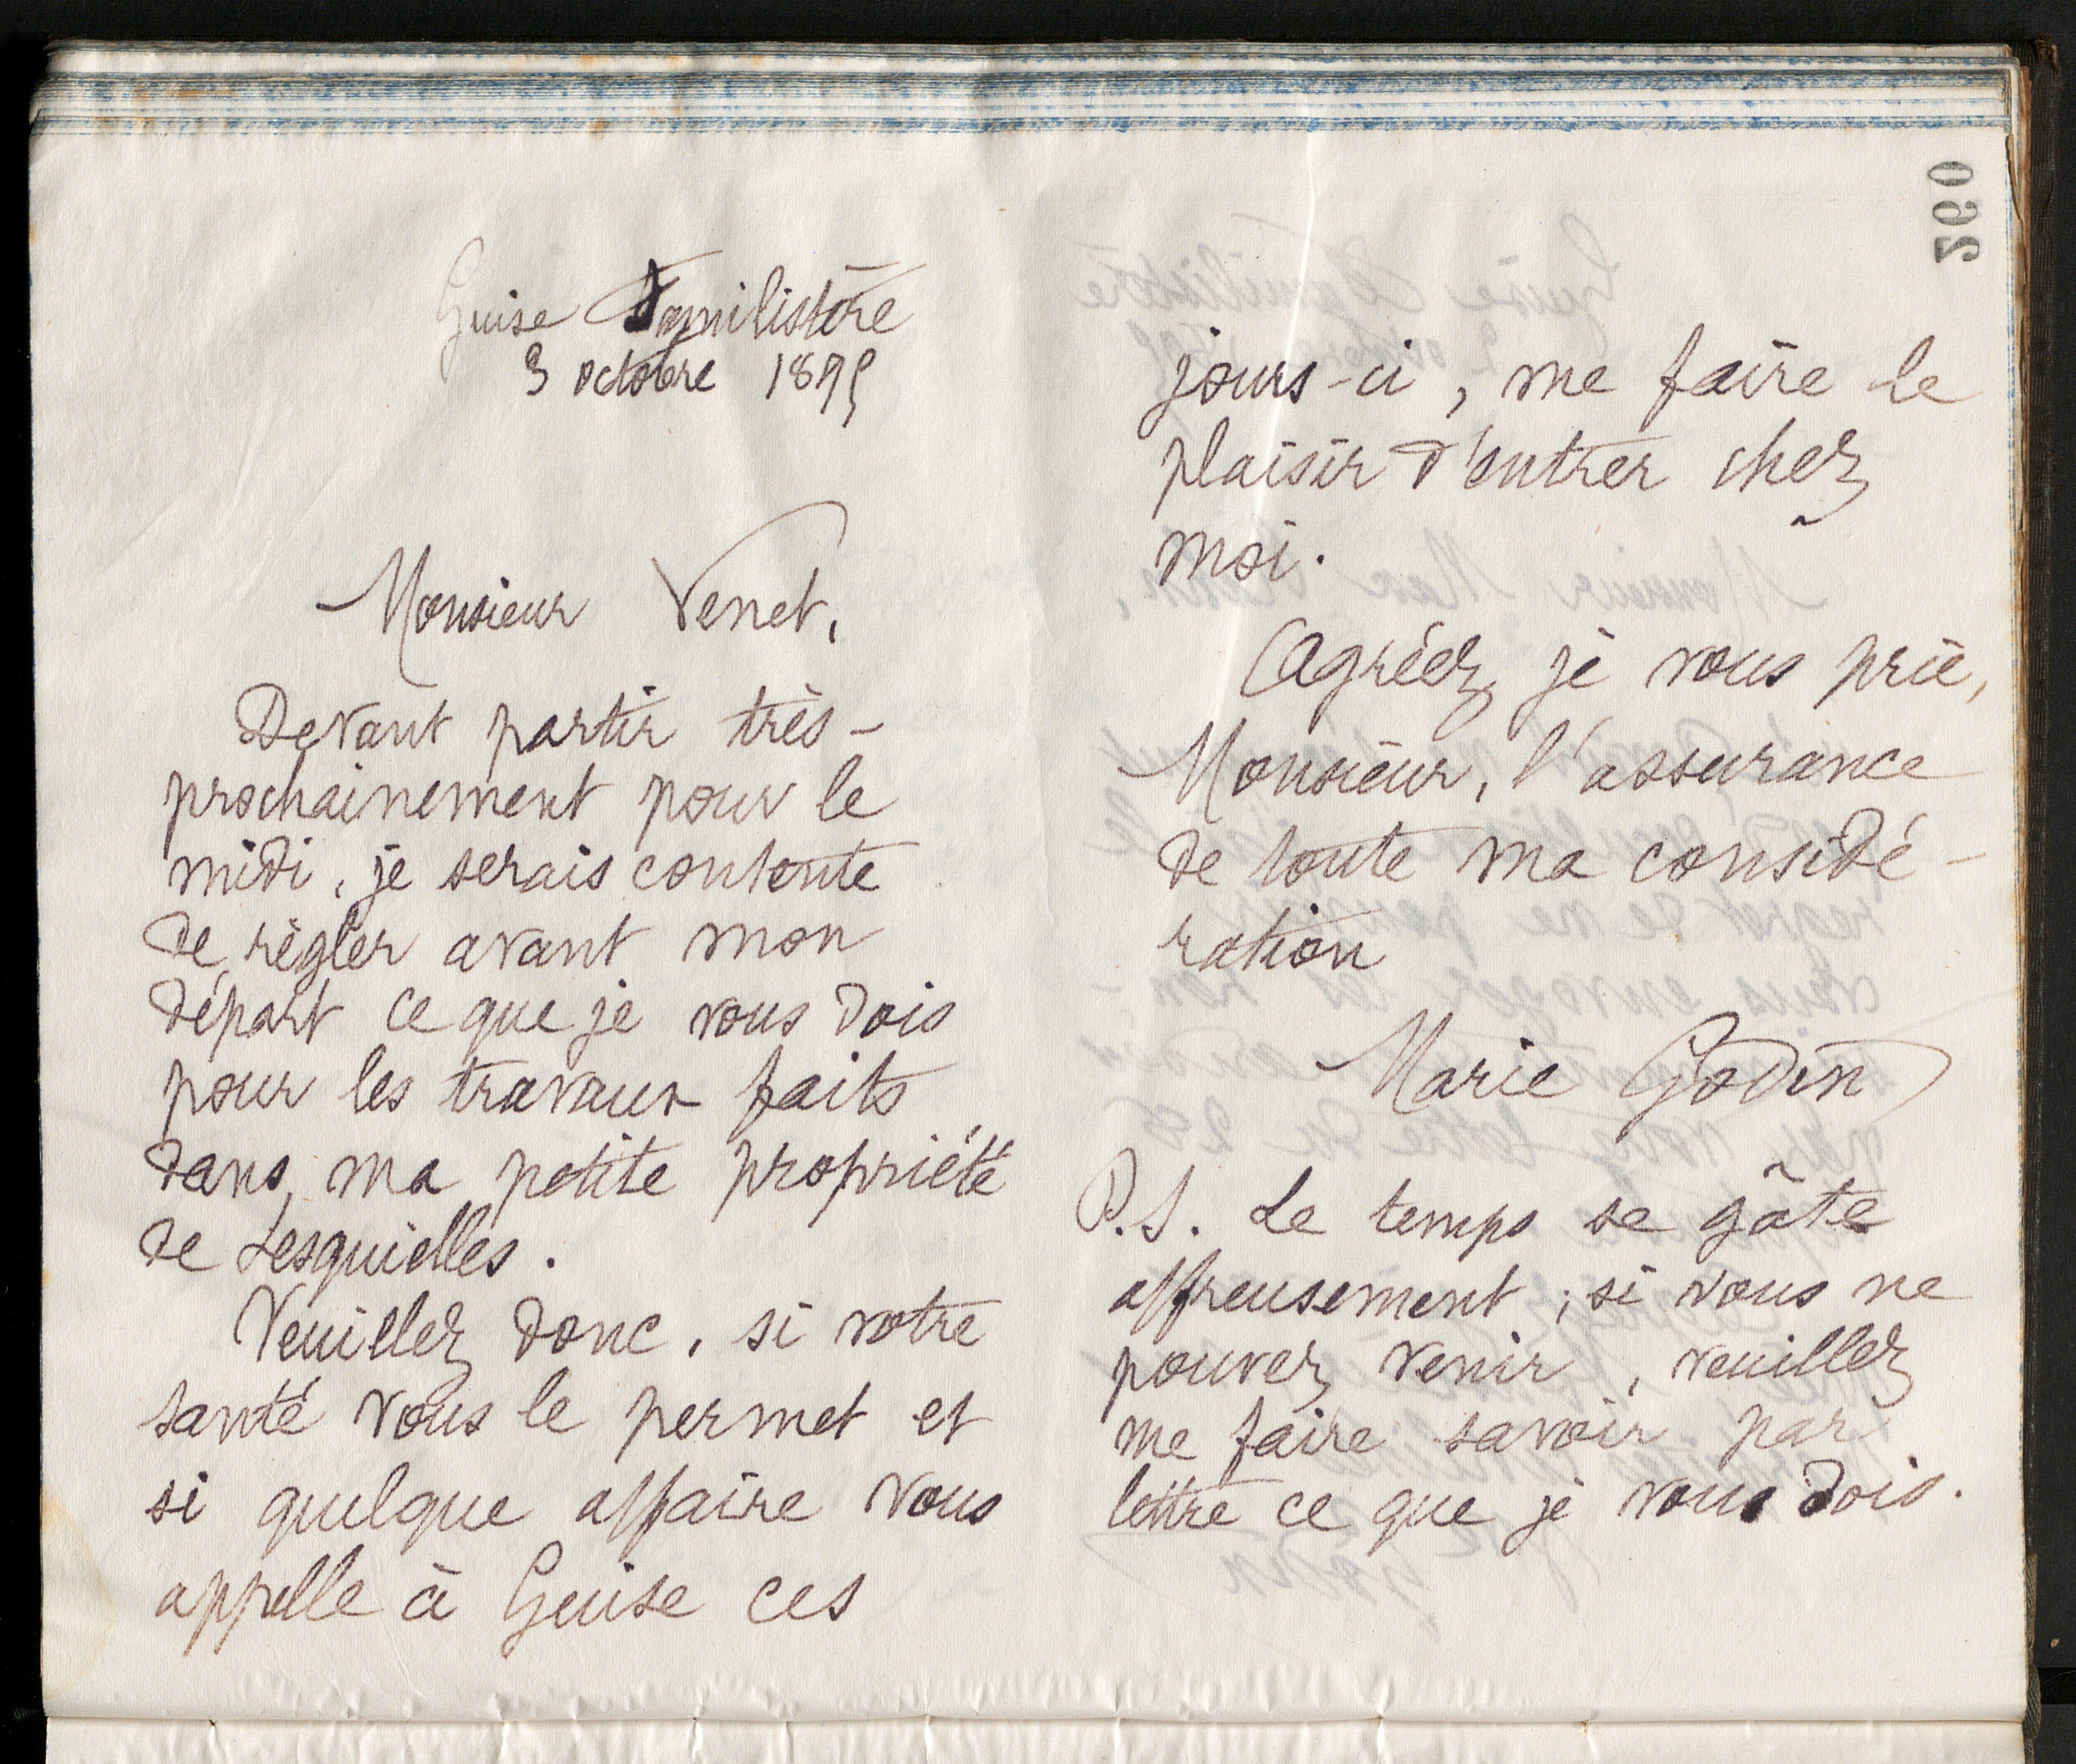 Guise Familistère
3 octobre 1895
Monsieur Venet,
Devant partir très-
prochainement pour le
midi, je serais contente
de régler avant mon
départ ce que je vous dois
pour les travaux faits
dans ma petite propriété
de Lesquielles.
Veuillez donc, si votre
santé vous le permet et
si quelque affaire vous
appelle à Guise ces
260
jours-ci, me faire le
plaisir d'entrer chez
moi.
Agréez, je vous prie,
Monsieur, l'assurance
de toute ma considé-
ration
Marie Godin
P.S. Le temps se gâte
affreusement ; si vous ne
pouvez venir, veuillez
me faire savoir par
lettre ce que je vous dois.